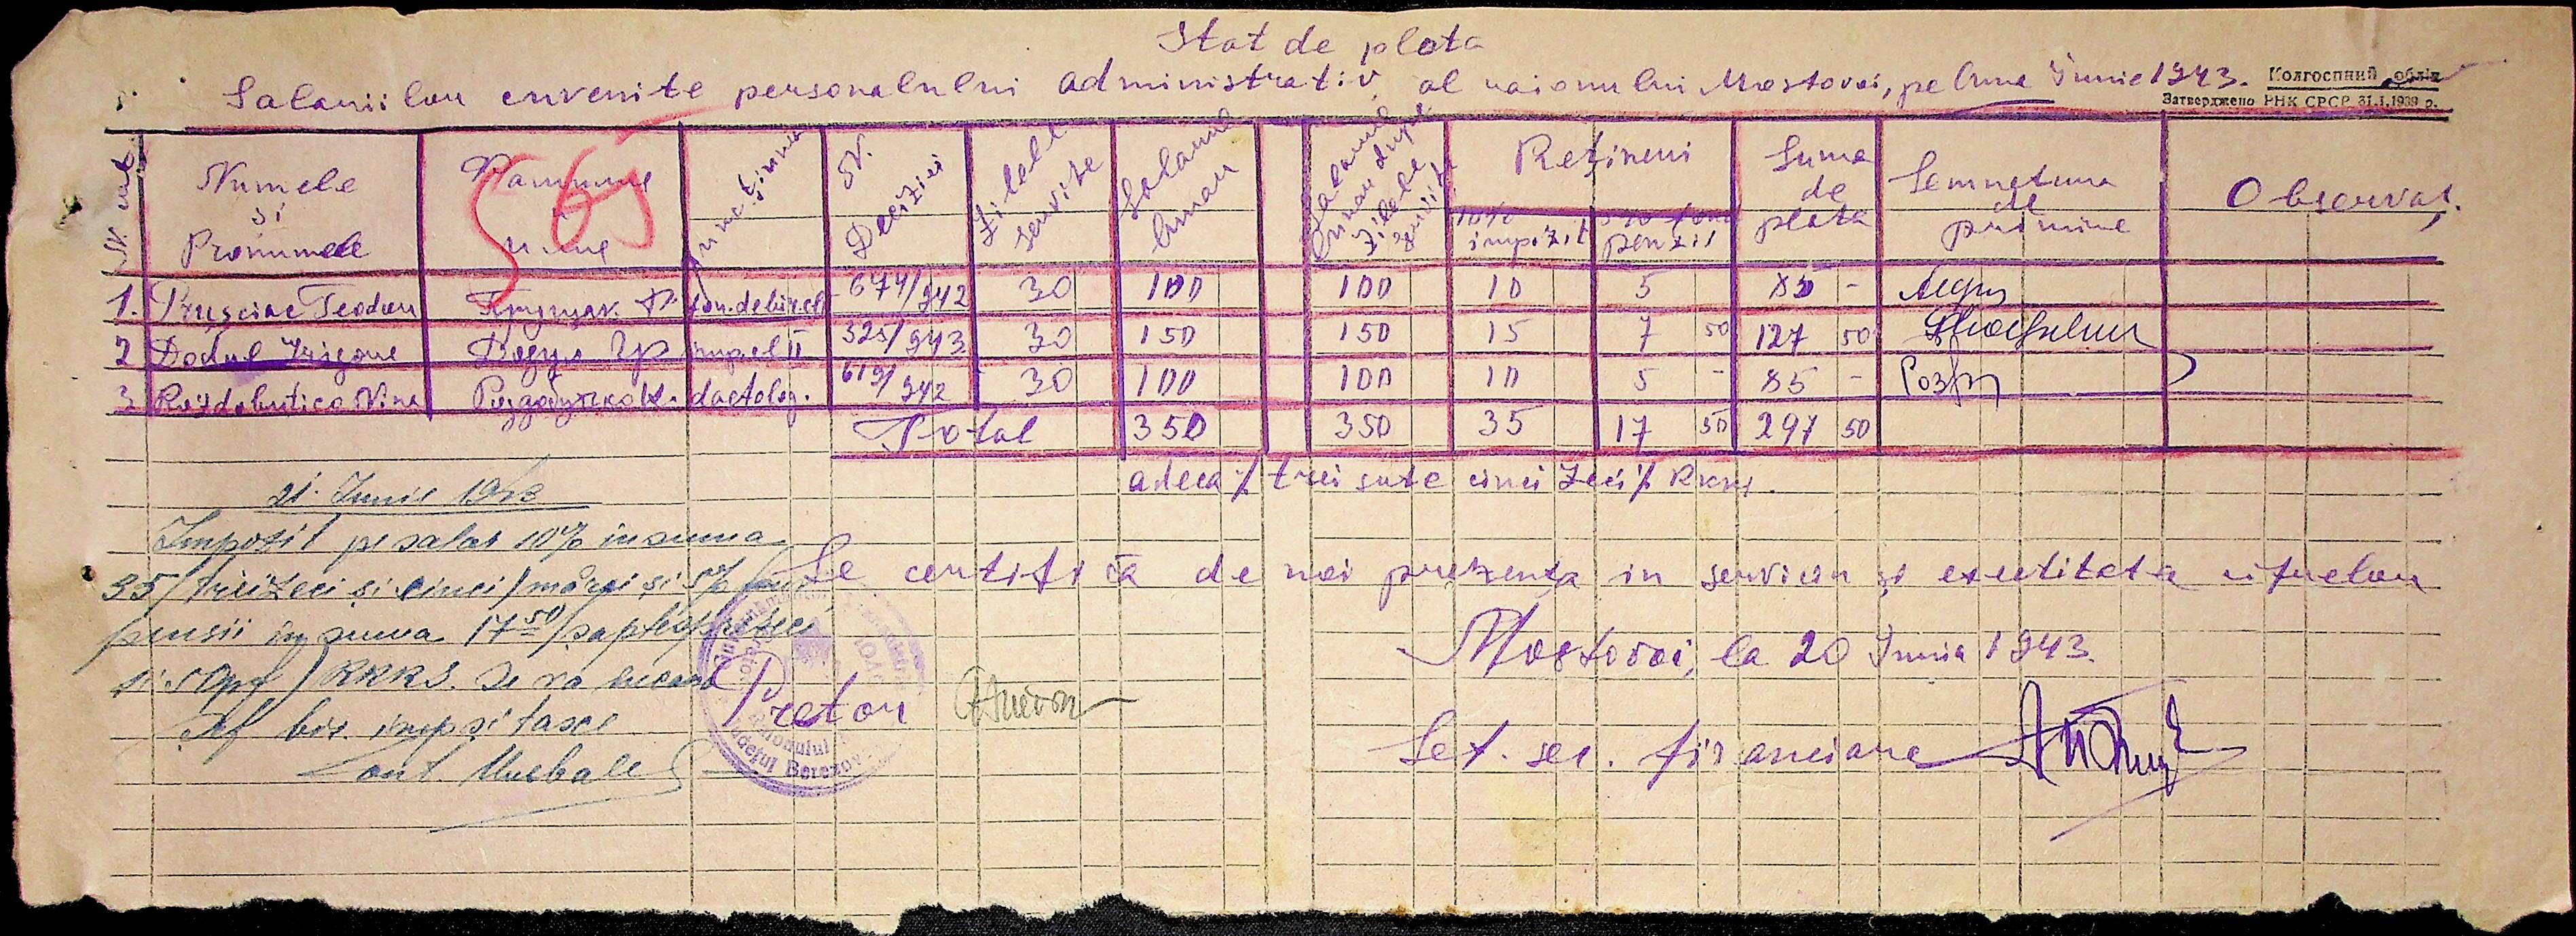 Stat de plata
Salariilor cuvenite personalului administrativ al raionului Mostovoi, pe luna Junie 1943.
Колгоспний облік
Затверджено РНК СРСР 31.I.1939 р.
N. crt. Numele si Pronumele Фамилия и имя Functiunea N. Deciziei Zilele servite Salariul lunar Salariul lunar dupa zilele servite Rețineri 10% impozit 5% fond penzii Suma de plata Semnetura de primire Observaț.
65
1. Prușciac Teodor Прущак Ф. 674/942 30 100 100 10 5 85 -
2 Dodul Grigore Додул Гр impiel II 525/943 30 150 150 15 7 50 127 50
3 Rozdobutico Nina Роздобутько Н. dactolog. 619/942 30 100 100 10 5 - 85 - Розд
Total 350 350 35 17 50 297 50
adeca % trei sute cinci zeci % RKKS.
21. Iunie 1943
Impozit pe salar 10% in suma
35 /treizeci si cinci/ mărci și 5% fond
pensii in suma 17 50 /saptesprezece
si 50 pf/ RKKS. se va incasa
Sef bir. imp si taxe
Se certifica de noi prezența in serviciu și exectitatea cifrelor
Mostovoi, la 20 Junie 1943.
Pretor
Raionului
Județul Berezovca
Șef. ser. financiare